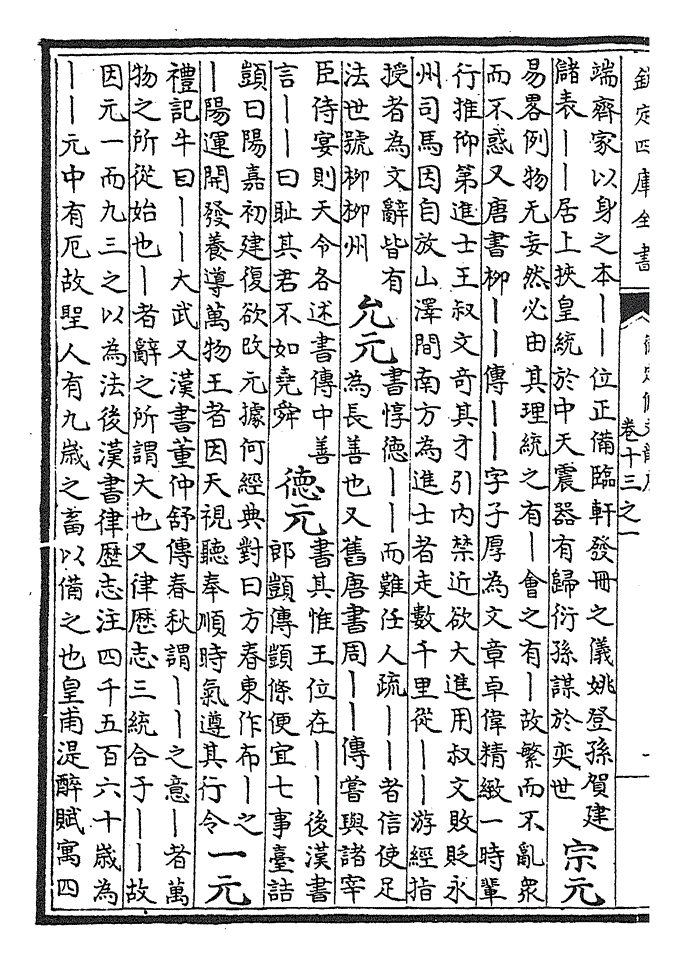 欽定四庫全書
卷十三之一
端齊家以身之本——位正備臨軒發冊之儀姚登孫賀建
儲表——居上挾皇統於中天震器有歸衍孫謀於奕世
宗元
易畧例物无妄然必由其理統之有—會之有—故繁而不亂衆
而不惑又唐書柳——傳——字子厚為文章卓偉精緻一時輩
行推仰第進士王叔文奇其才引内禁近欲大進用叔文敗貶永
州司馬因自放山澤間南方為進士者走數千里從——游經指
授者為文辭皆有
法世號柳柳州
允元
書惇德——而難任人疏——者信使足
為長善也又舊唐書周——傳嘗與諸宰
臣侍宴則天令各述書傳中善
言——曰耻其君不如堯舜
德元
書其惟王位在——後漢書
郎顗傳顗條便宜七事臺詰
顗曰陽嘉初建復欲改元據何經典對曰方春東作布—之
—陽運開發養導萬物王者因天視聽奉順時氣遵其行令
一元
禮記牛曰——大武又漢書董仲舒傳春秋謂——之意—者萬
物之所從始也—者辭之所謂大也又律歷志三統合于——故
因元一而九三之以為法後漢書律歷志注四千五百六十歲為
——元中有厄故聖人有九歲之畜以備之也皇甫湜醉賦寓四